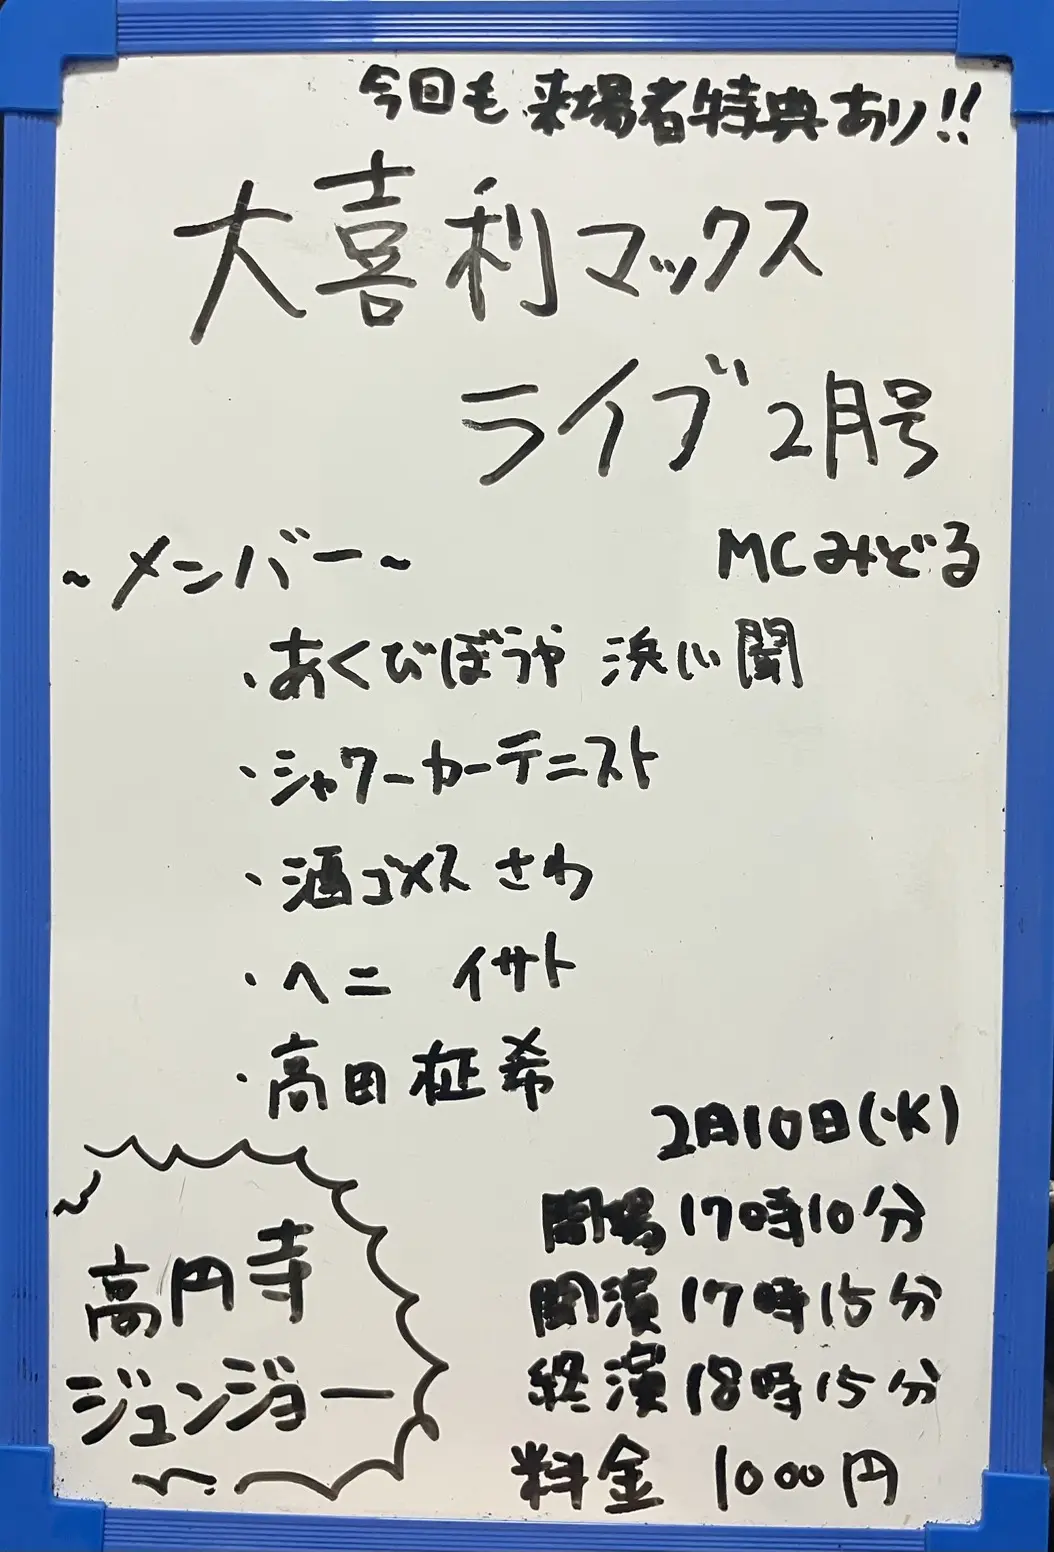 今回も来場者特典あり!!
大喜利マックス
ライブ2月号
MCみどる
~メンバー~
・あくびぼうや 浜心聞
・シャワーカーテニスト
・酒ゴメス さわ
・ヘニ イサト
・高田 柾希
2月10日(火)
開場17時10分
開演17時15分
終演18時15分
料金 1000円
高円寺
ジュンジョー